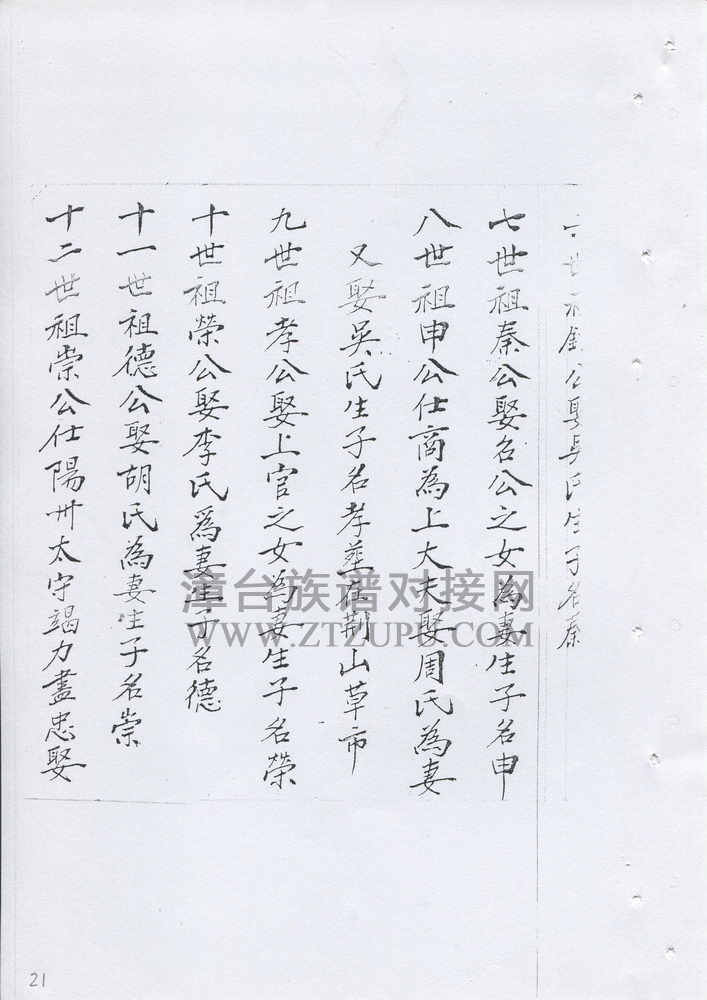 世公娶吳氏生子名秦
七世祖秦公娶名公之女為妻生子名申
八世祖申公仕商為上大夫娶周氏為妻
又娶吳氏生子名孝葬在荆山草市
九世祖孝公娶上官之女為妻生子名榮
十世祖榮公娶李氏爲妻生子名德
十一世祖德公娶胡氏為妻生子名崇
十二世祖崇公仕陽卅太守竭力盡忠娶
漳台族谱对接网
WWW.ZTZUPU.COM
21